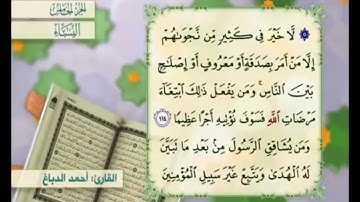 الجزء الخامس
النساء
۞ لَّا خَيْرَ فِى كَثِيرٍ مِّن نَّجْوَىٰهُمْ
إِلَّا مَنْ أَمَرَ بِصَدَقَةٍ أَوْ مَعْرُوفٍ أَوْ إِصْلَٰحٍ
بَيْنَ النَّاسِ ۚ وَمَن يَفْعَلْ ذَٰلِكَ ابْتِغَآءَ
مَرْضَاتِ اللَّهِ فَسَوْفَ نُؤْتِيهِ أَجْرًا عَظِيمًا ١١٤
وَمَن يُشَاقِقِ الرَّسُولَ مِنۢ بَعْدِ مَا تَبَيَّنَ
لَهُ الْهُدَىٰ وَيَتَّبِعْ غَيْرَ سَبِيلِ الْمُؤْمِنِينَ
القارئ: أحمد الدباغ